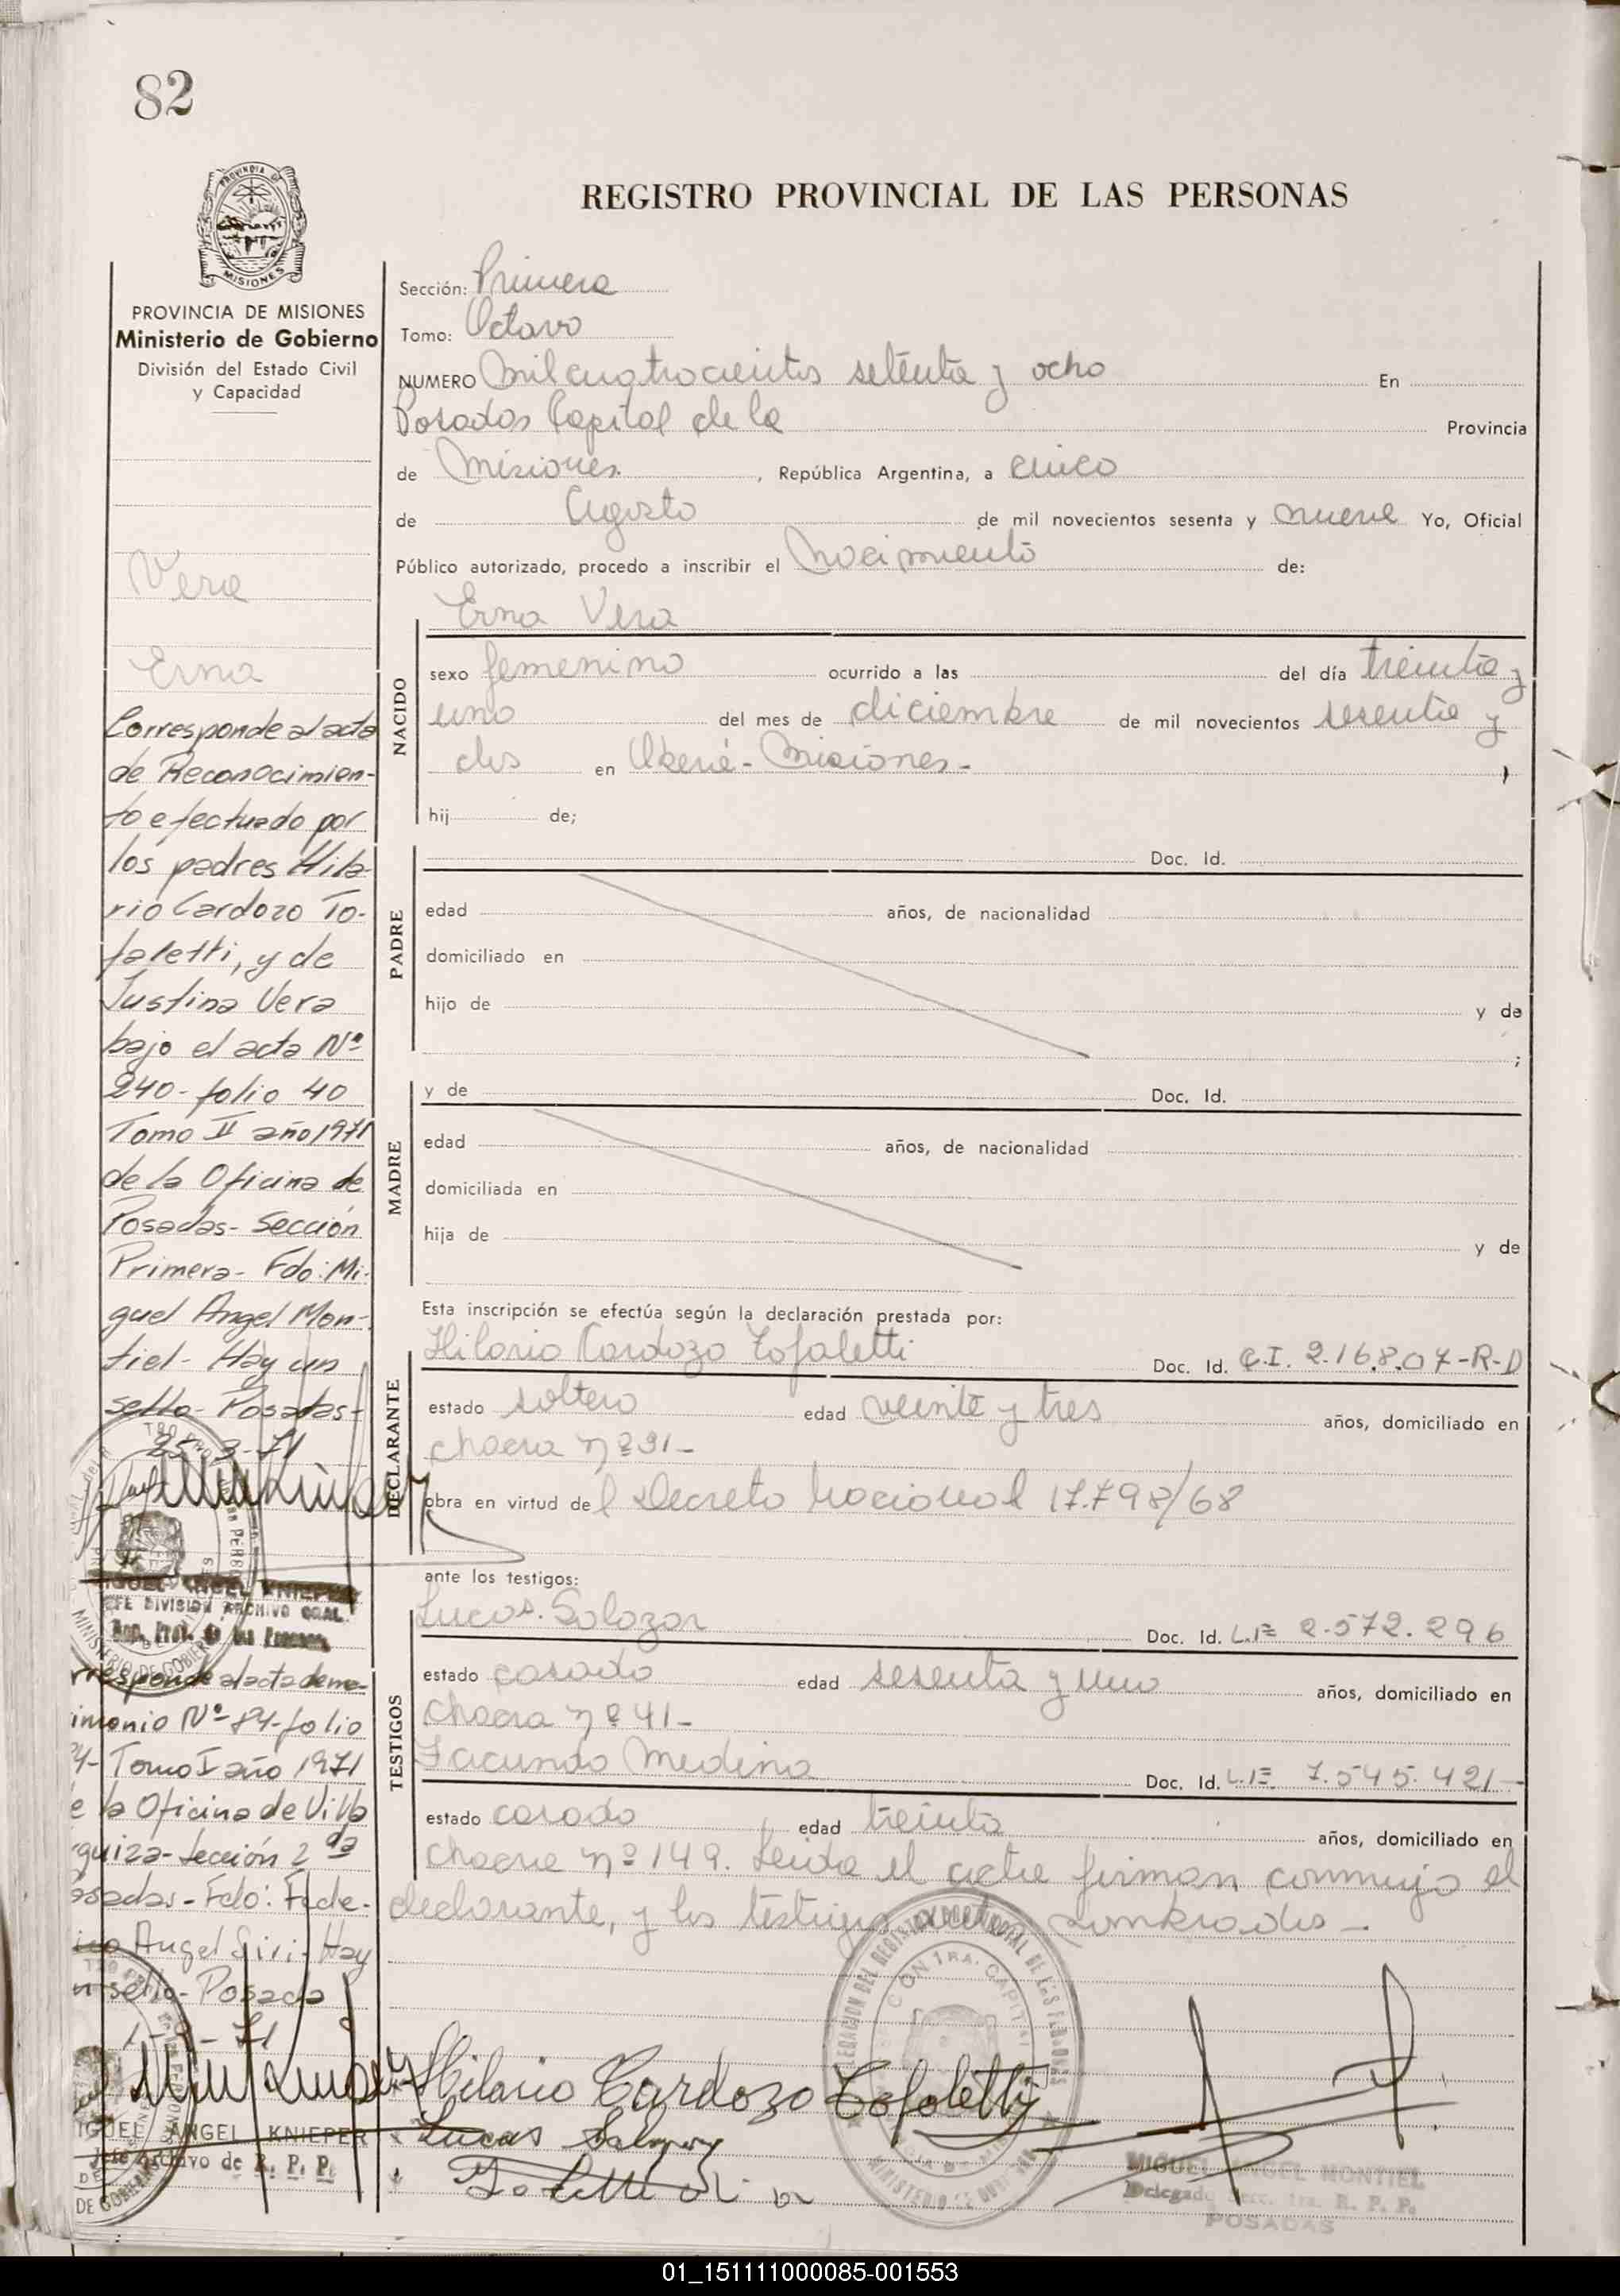 82
PROVINCIA DE
MISIONES
PROVINCIA DE MISIONES
Ministerio de Gobierno
División del Estado Civil
y Capacidad
Vera
Erna
Corresponde al acta
de Reconocimien-
to efectuado por
los padres Hila-
rio Cardozo To-
faletti, y de
Justina Vera
bajo el acta Nº
240- folio 40
Tomo II año 1971
de la Oficina de
Posadas- Sección
Primera- Fdo: Mi-
guel Angel Mon-
tiel- Hay un
sello- Posadas-
25-3-71
MIGUEL ANGEL KNIEPER
JEFE DIVISION ARCHIVO GRAL.
Rep. Prov. de las Personas
rresponde al acta de ma-
imonio Nº 84-folio
4- Tomo I año 1971
e la Oficina de Villa
rquiza- Sección 2da
osadas- Fdo: Fede-
ico Angel Giri- Hay
n sello- Posada
MIGUEL ANGEL KNIEPER
Jefe Archivo de R. P. P.
REGISTRO PROVINCIAL DE LAS PERSONAS
Sección: Primera
Tomo: Octavo
NUMERO Mil cuatrocientos setenta y ocho En
Posadas Capital de la Provincia
de Misiones, República Argentina, a cinco
de Agosto de mil novecientos sesenta y nueve Yo, Oficial
Público autorizado, procedo a inscribir el Nacimiento de:
Erna Vera
NACIDO
sexo femenino ocurrido a las del día treinta y
uno del mes de diciembre de mil novecientos sesenta y
dos en Oberá- Misiones- ,
hij de;
PADRE
Doc. Id.
edad años, de nacionalidad
domiciliado en
hijo de y de
;
MADRE
y de Doc. Id.
edad años, de nacionalidad
domiciliada en
hija de y de
Esta inscripción se efectúa según la declaración prestada por:
DECLARANTE
Hilario Cardozo Tofaletti Doc. Id. C.I. 2.168.07-R-D
estado soltero edad veinte y tres años, domiciliado en
chacra nº 91-
obra en virtud del Decreto Nacional 17.798/68
ante los testigos:
TESTIGOS
Lucas Salazar Doc. Id. L.E 2.572.296
estado casado edad sesenta y uno años, domiciliado en
chacra nº 41-
Facundo Medina Doc. Id. L.E 7.545.421-
estado casado edad treinta años, domiciliado en
chacra nº 149. Leída el acta firman conmigo el
declarante, y los testigos ante nombrados-
Hilario Cardozo Tofaletti
Lucas Salazar
MIGUEL ANGEL MONTIEL
Delegado Secc. 1ra. R. P. P.
POSADAS
01_151111000085-001553